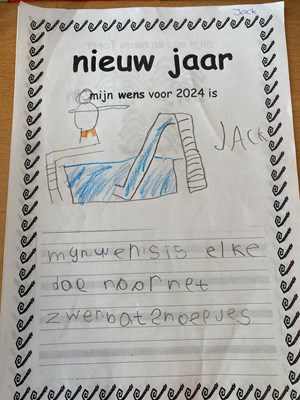 Jack
nieuw jaar
mijn wens voor 2024 is
JACK
mijn wens is elke
dag noor net
zwembat snoepjes